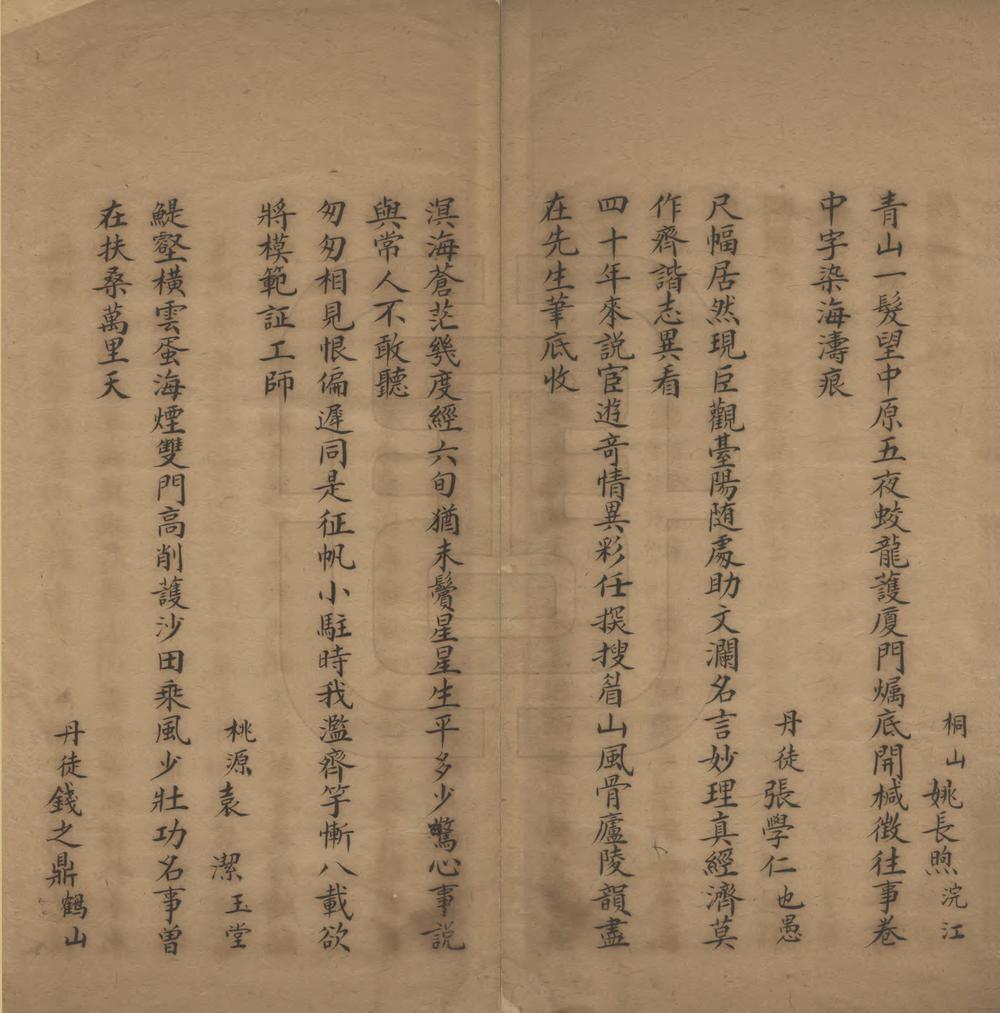 桐山姚長煦浣江
青山一髮望中原五夜蛟龍護厦門爥底開椷徴往事卷
中字染海濤痕
丹徒張學仁也愚
尺幅居然現巨觀臺陽随處助文瀾名言妙理真經濟莫
作齊諧志異看
四十年來説宦遊竒情異彩任探搜眉山風骨廬陵韻盡
在先生筆底收
溟海蒼茫幾度經六旬猶未鬢星星生平多少驚心事説
與常人不敢聽
匆匆相見恨偏遲同是征帆小駐時我濫齊竽慚八載欲
將模範証工師
桃源袁潔玉堂
鯷壑橫雲蛋海煙雙門高削護沙田乘風少壯功名事曽
在扶桑萬里天
丹徒錢之鼎鶴山